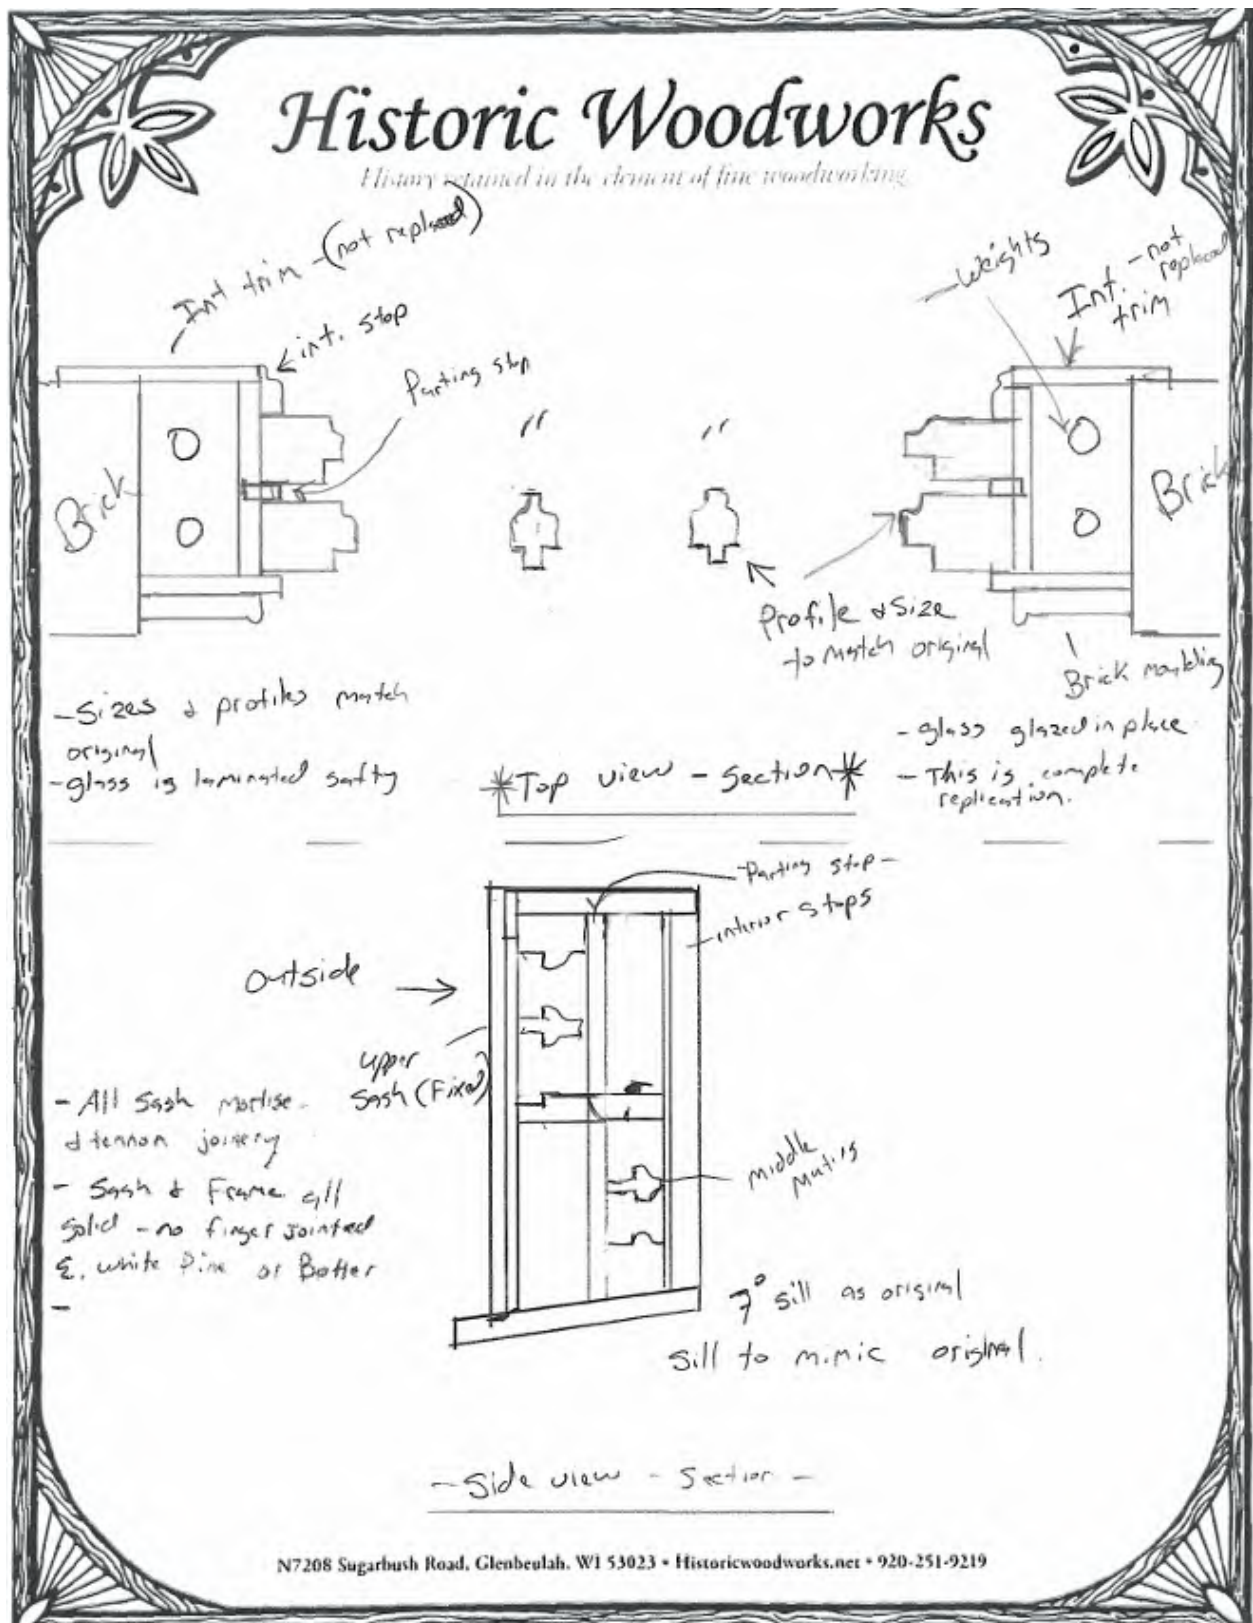 Historic Woodworks
History retained in the element of fine woodworking
Int trim - (not replaced)
int. stop
Parting stop
Weights
Int. - not
replaced
trim
Brick
"
"
Brick
Profile & Size
to match original
Brick moulding
- Sizes & profiles match
original
- glass is laminated safty
*Top view - Section*
- glass glazed in place
- This is complete
replication.
- Parting stop -
- interior stops
Outside
upper
Sash (Fixed)
- All Sash mortise
& tennon joinery
- Sash & Frame all
Solid - no finger jointed
E. white Pine or Better
-
middle
7° sill as original
Sill to mimic original.
- Side view - Section -
N7208 Sugarbush Road, Glenbeulah, WI 53023 • Historicwoodworks.net • 920-251-9219